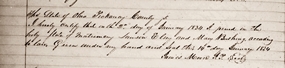 The State of Ohio Pickaway County ss
I hereby certify that on the 16th day of January 1834 I joined in the
holy State of Matrimony and Mary according
to law. Given under my hand and seal this 16th day January 1834
James